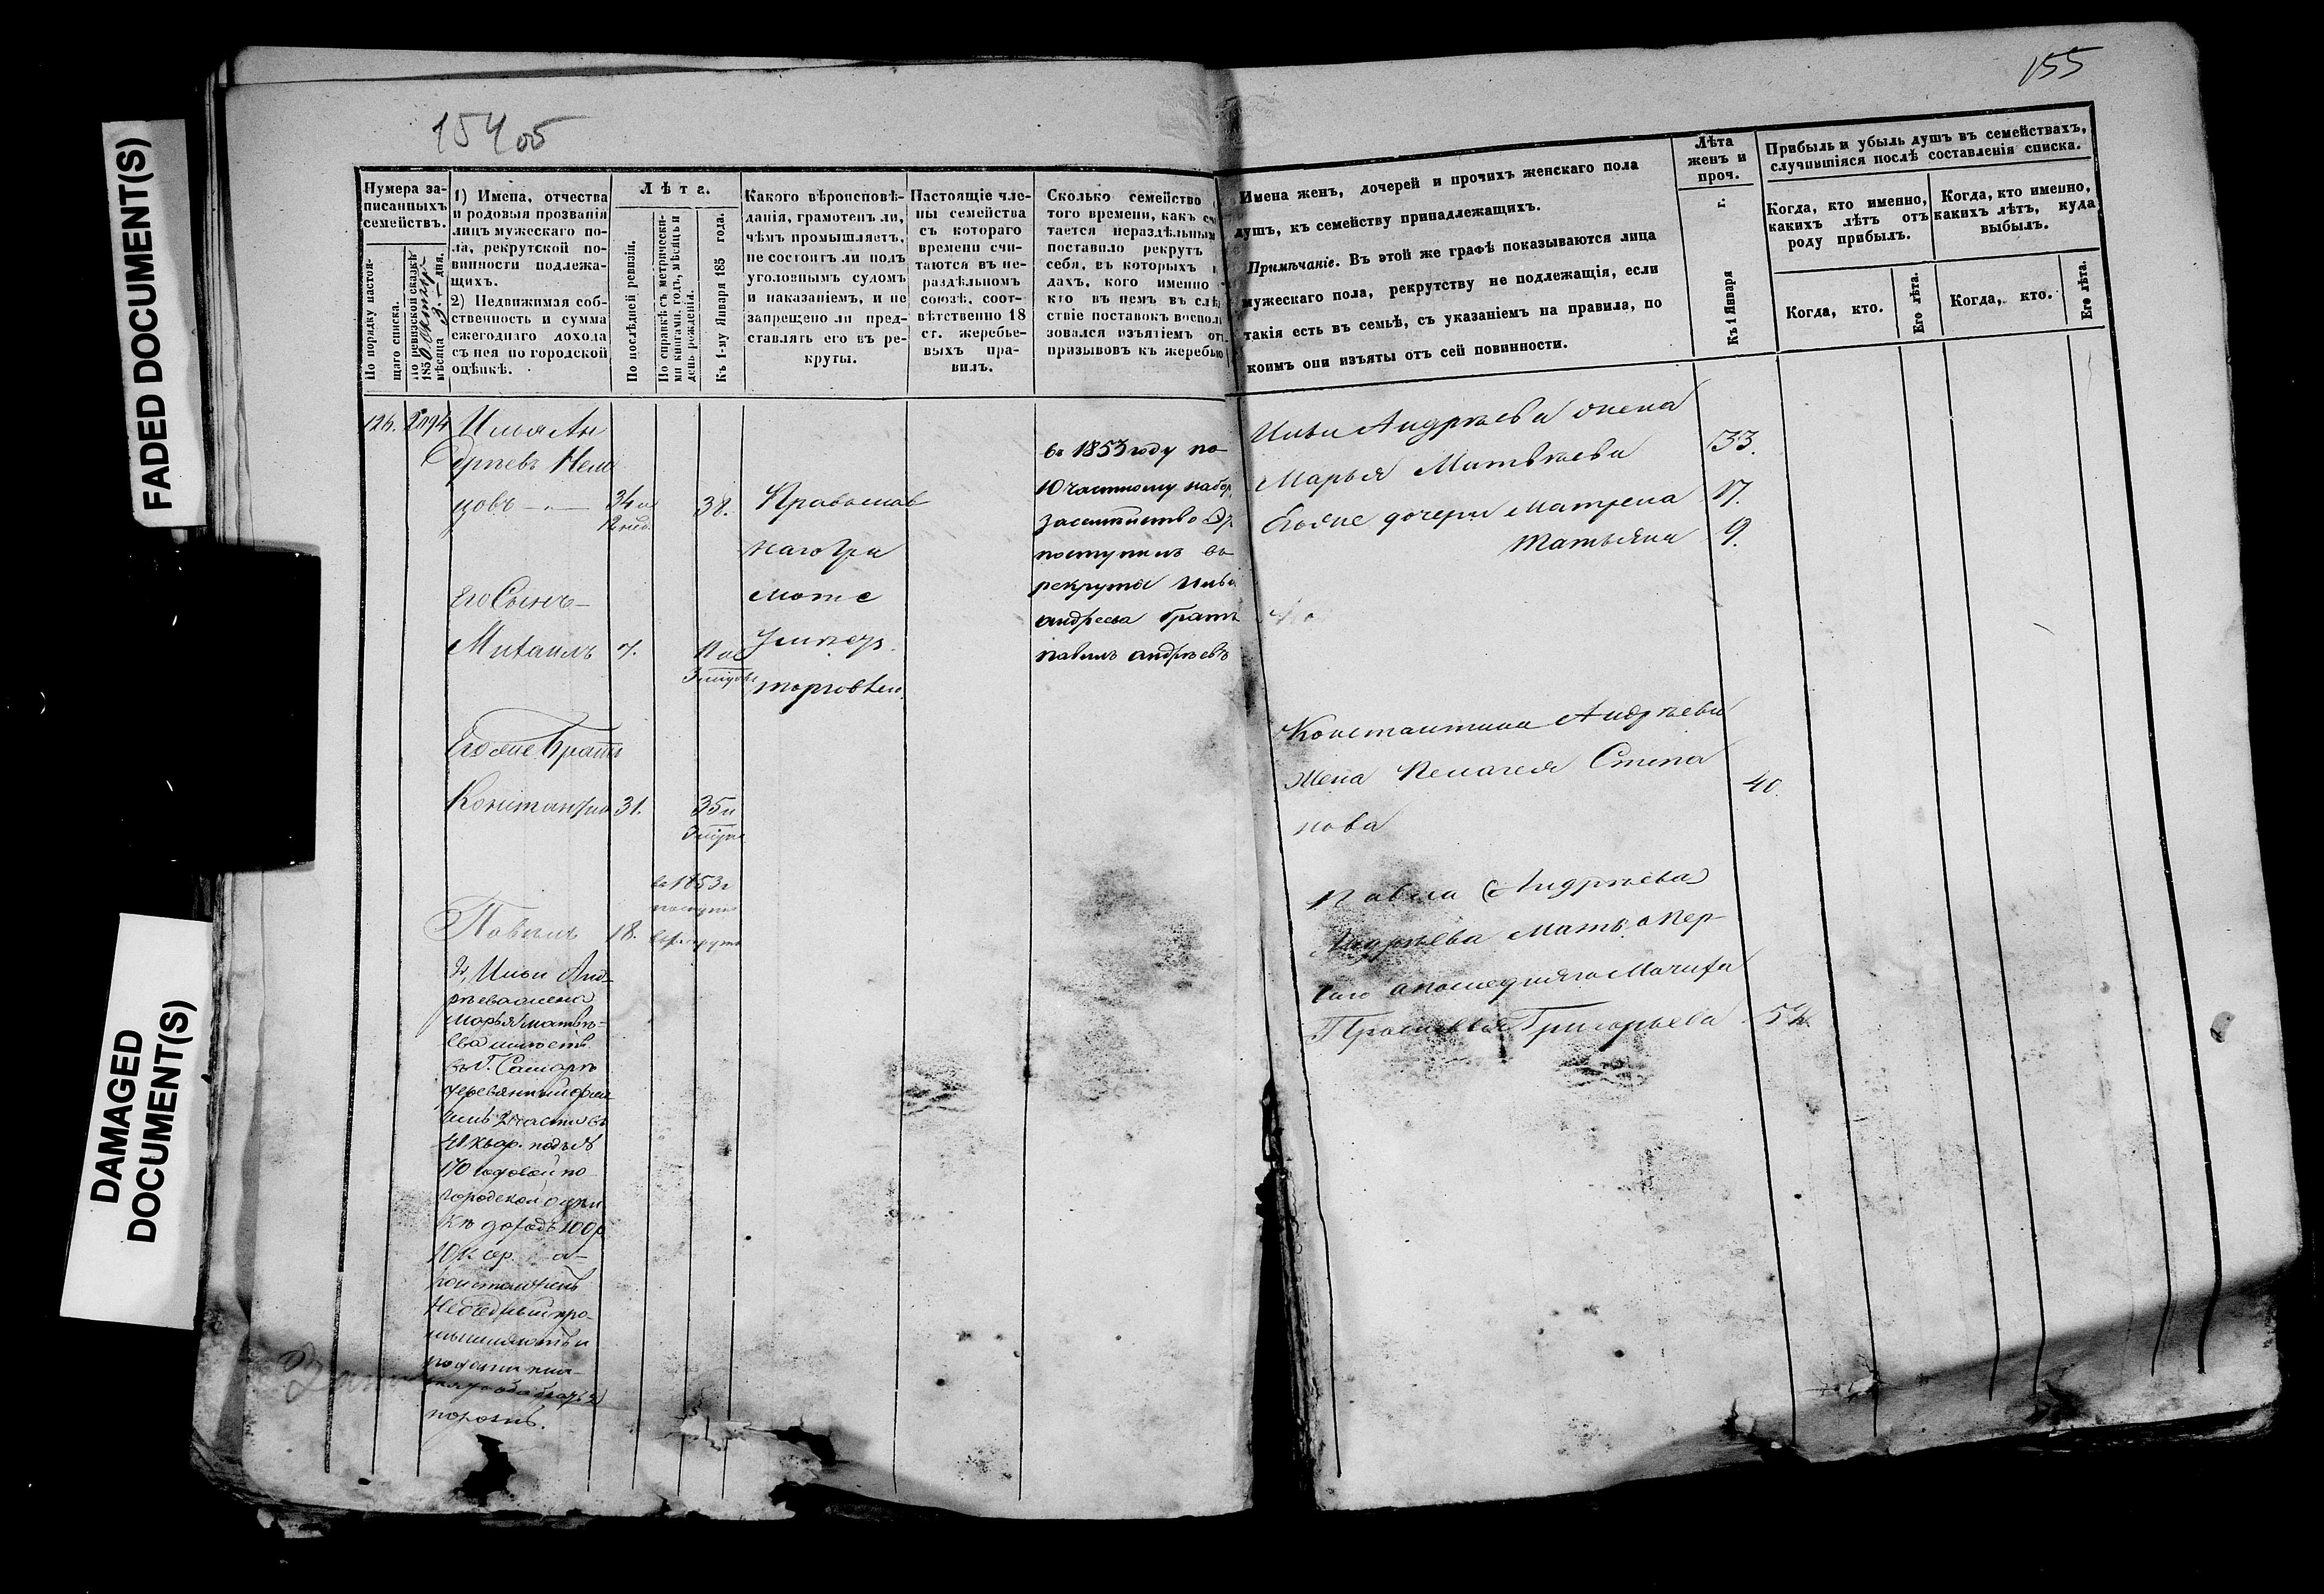 FADED DOCUMENT(S)
DAMAGED
DOCUMENT(S)
154об
155
Нумера за-
писанныхъ
семействъ.
По порядку настоя-
щаго списка.
По ревизской сказкѣ
1850
мѣсяца 3. дня.
1) Имена, отчества
и родовыя прозванія
лицъ мужескаго по-
ла, рекрутской по-
винности подлежа-
щихъ.
2) Недвижимая соб-
ственность и сумма
ежегоднаго дохода
съ нея по городской
оцѣнкѣ.
Лѣта.
По послѣдней ревизіи.
По справкѣ съ метрически-
ми книгами. годъ, мѣсяцъ и
день рожденія.
Къ 1-му Января 185 года.
Какого вѣроисповѣ-
данія, грамотенъ ли,
чѣмъ промышляетъ,
не состоитъ ли подъ
уголовнымъ судомъ
и наказаніемъ, и не
запрещено ли пред-
ставлять его въ ре-
круты.
Настоящіе чле-
ны семейства
съ котораго
времени счи-
таются въ не-
раздѣльномъ
союзѣ, соот-
вѣтственно 18
ст. жеребье-
выхъ пра-
вилъ.
Сколько семейство
того времени, какъ
тается нераздѣльным
поставило рекрутъ
себя, въ которыхъ
дахъ, кого именно
кто въ немъ въ слѣ
ствіе поставокъ воспол
зовался изъятіемъ от
призывовъ къ жеребью
126. 2094 Илья Ан
дрѣевъ Нем
цовъ 34 и 38.
Православ
наго Гра
моте
торговлею.
Его Сынъ
Михаилъ 7.
Егоже Братъ
Константин 31. 35 и
въ 1853 г
поступил
Павелъ 18. въ рекруты
2, Ильи Анд-
рѣева жена
Марья Матвѣ-
ева имѣетъ
въ г. Самарѣ
деревянный
2 части въ
41 квар. подъ №
170
городской оцѣн
кѣ доходъ 100 р
10 к. сер. а
Константинъ
въ 1853 году по
10 частному набор.
за семейство
поступилъ въ
рекруты Ильи
андреева братъ
павелъ андрѣевъ
Имена женъ, дочерей и прочихъ женскаго пола
душъ, къ семейству принадлежащихъ.
Примѣчаніе. Въ этой же графѣ показываются лица
мужескаго пола, рекрутству не подлежащія, если
такія есть въ семьѣ, съ указаніемъ на правила, по
коимъ они изъяты отъ сей повинности.
Лѣта
женъ и
проч.
Къ 1 Января г.
Прибыль и убыль душъ въ семействахъ,
случившіяся послѣ составленія списка.
Когда, кто именно,
какихъ лѣтъ отъ
роду прибылъ.
Когда, кто именно,
какихъ лѣтъ, куда
выбылъ.
Когда, кто.
Его лѣта.
Когда, кто.
Его лѣта.
Ильи Андрѣева жена
Марья Матвѣева 33.
Егоже дочери Матрена 17.
Татьяна 9.
Константина Андрѣева
жена Пелагея Степа
нова 40.
Павла (Андрѣева)
Андрѣева Мать а Пер-
ваго а последняго Мачиха
Прасковья Григорьева